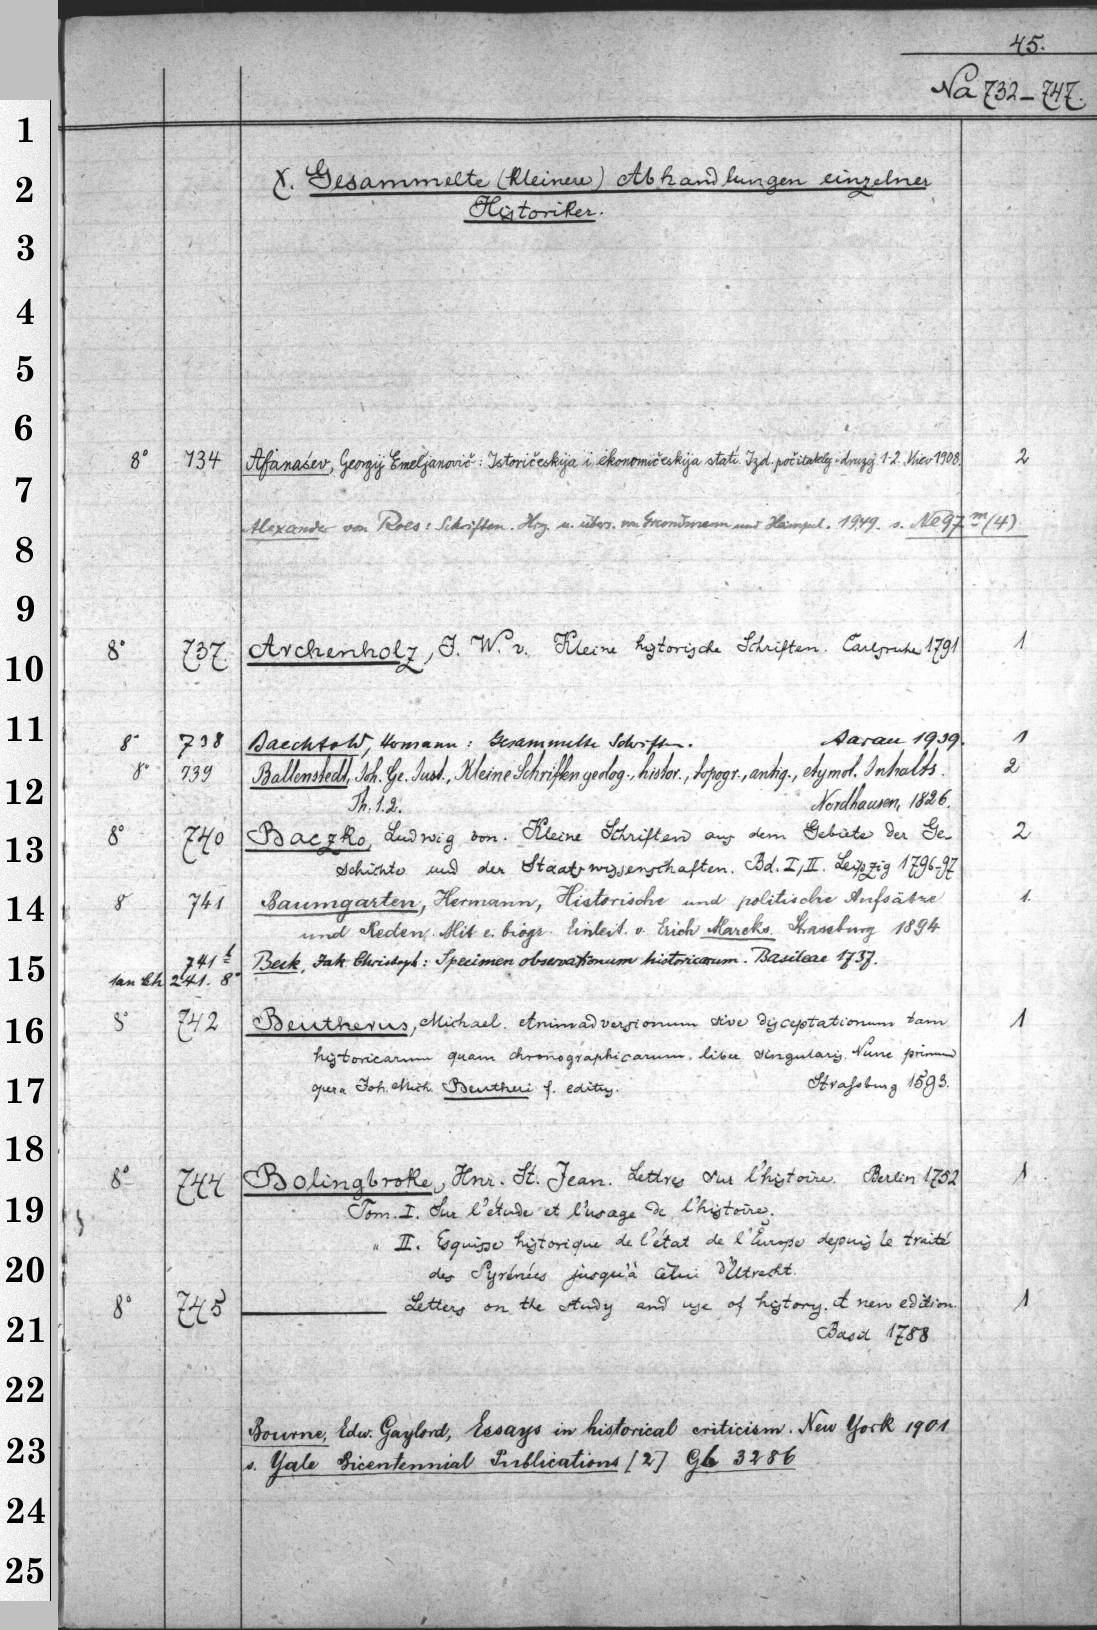 45.
Na 732-747.
1
2
3
4
5
6
7
8
9
10
11
12
13
14
15
16
17
18
19
20
21
22
23
24
25
X. Gesammelte (kleinere) Abhandlungen einzelner
Historiker.
8° 734 Afanaśev, Georgij Emeljanovič: Istoričeskija i ėkonomičeskija stati. Izd. počitatelej i druzej. 1-2. Kiev 1908. 2
Alexander von Roes: Schriften. Hrg. u. übers. von Grundmann und Heimpel. 1949. s. Ne 97 m (4)
8° 737 Archenholz, J. W. v. Kleine historische Schriften. Carlsruhe 1791 1
8° 738 Baechtold, Hermann: Gesammelte Schriften. Aarau 1939. 1
8° 739 Ballenstedt, Joh. Ge. Just., Kleine Schriften geolog., histor., topogr., antiq., etymol. Inhalts. 2
Th. 1.2. Nordhausen, 1826.
8° 740 Baczko, Ludwig von. Kleine Schriften aus dem Gebiete der Ge- 2
schichte und der Staatswissenschaften. Bd. I, II. Leipzig 1796-97
8° 741 Baumgarten, Hermann, Historische und politische Aufsätze 1.
und Reden. Mit e. biogr. Einleit. v. Erich Marcks. Strassburg 1894
741 b Beck, Jak. Christoph: Specimen observationum historicarum. Basileae 1737.
241. 8°
8° 742 Beutherus, Michael. Animadversionum sive disceptationum tam 1
historicarum quam chronographicarum liber singularis. Nunc primum
opera Joh. Mich. Beutheri f. editus. Straßburg 1593.
8° 744 Bolingbroke, Hnr. St. Jean. Lettres sur l'histoire. Berlin 1752 1
Tom. I. Sur l'étude et l'usage de l'histoire.
" II. Esquisse historique de l'état de l'Europe depuis le traité
des Pyrénées jusqu'à celui d'Utrecht.
8° 745 ——— Letters on the study and use of history. A new edition. 1
Basel 1788
Bourne, Edw. Gaylord, Essays in historical criticism. New York 1901
s. Yale Bicentennial Publications [2] Gb 3286